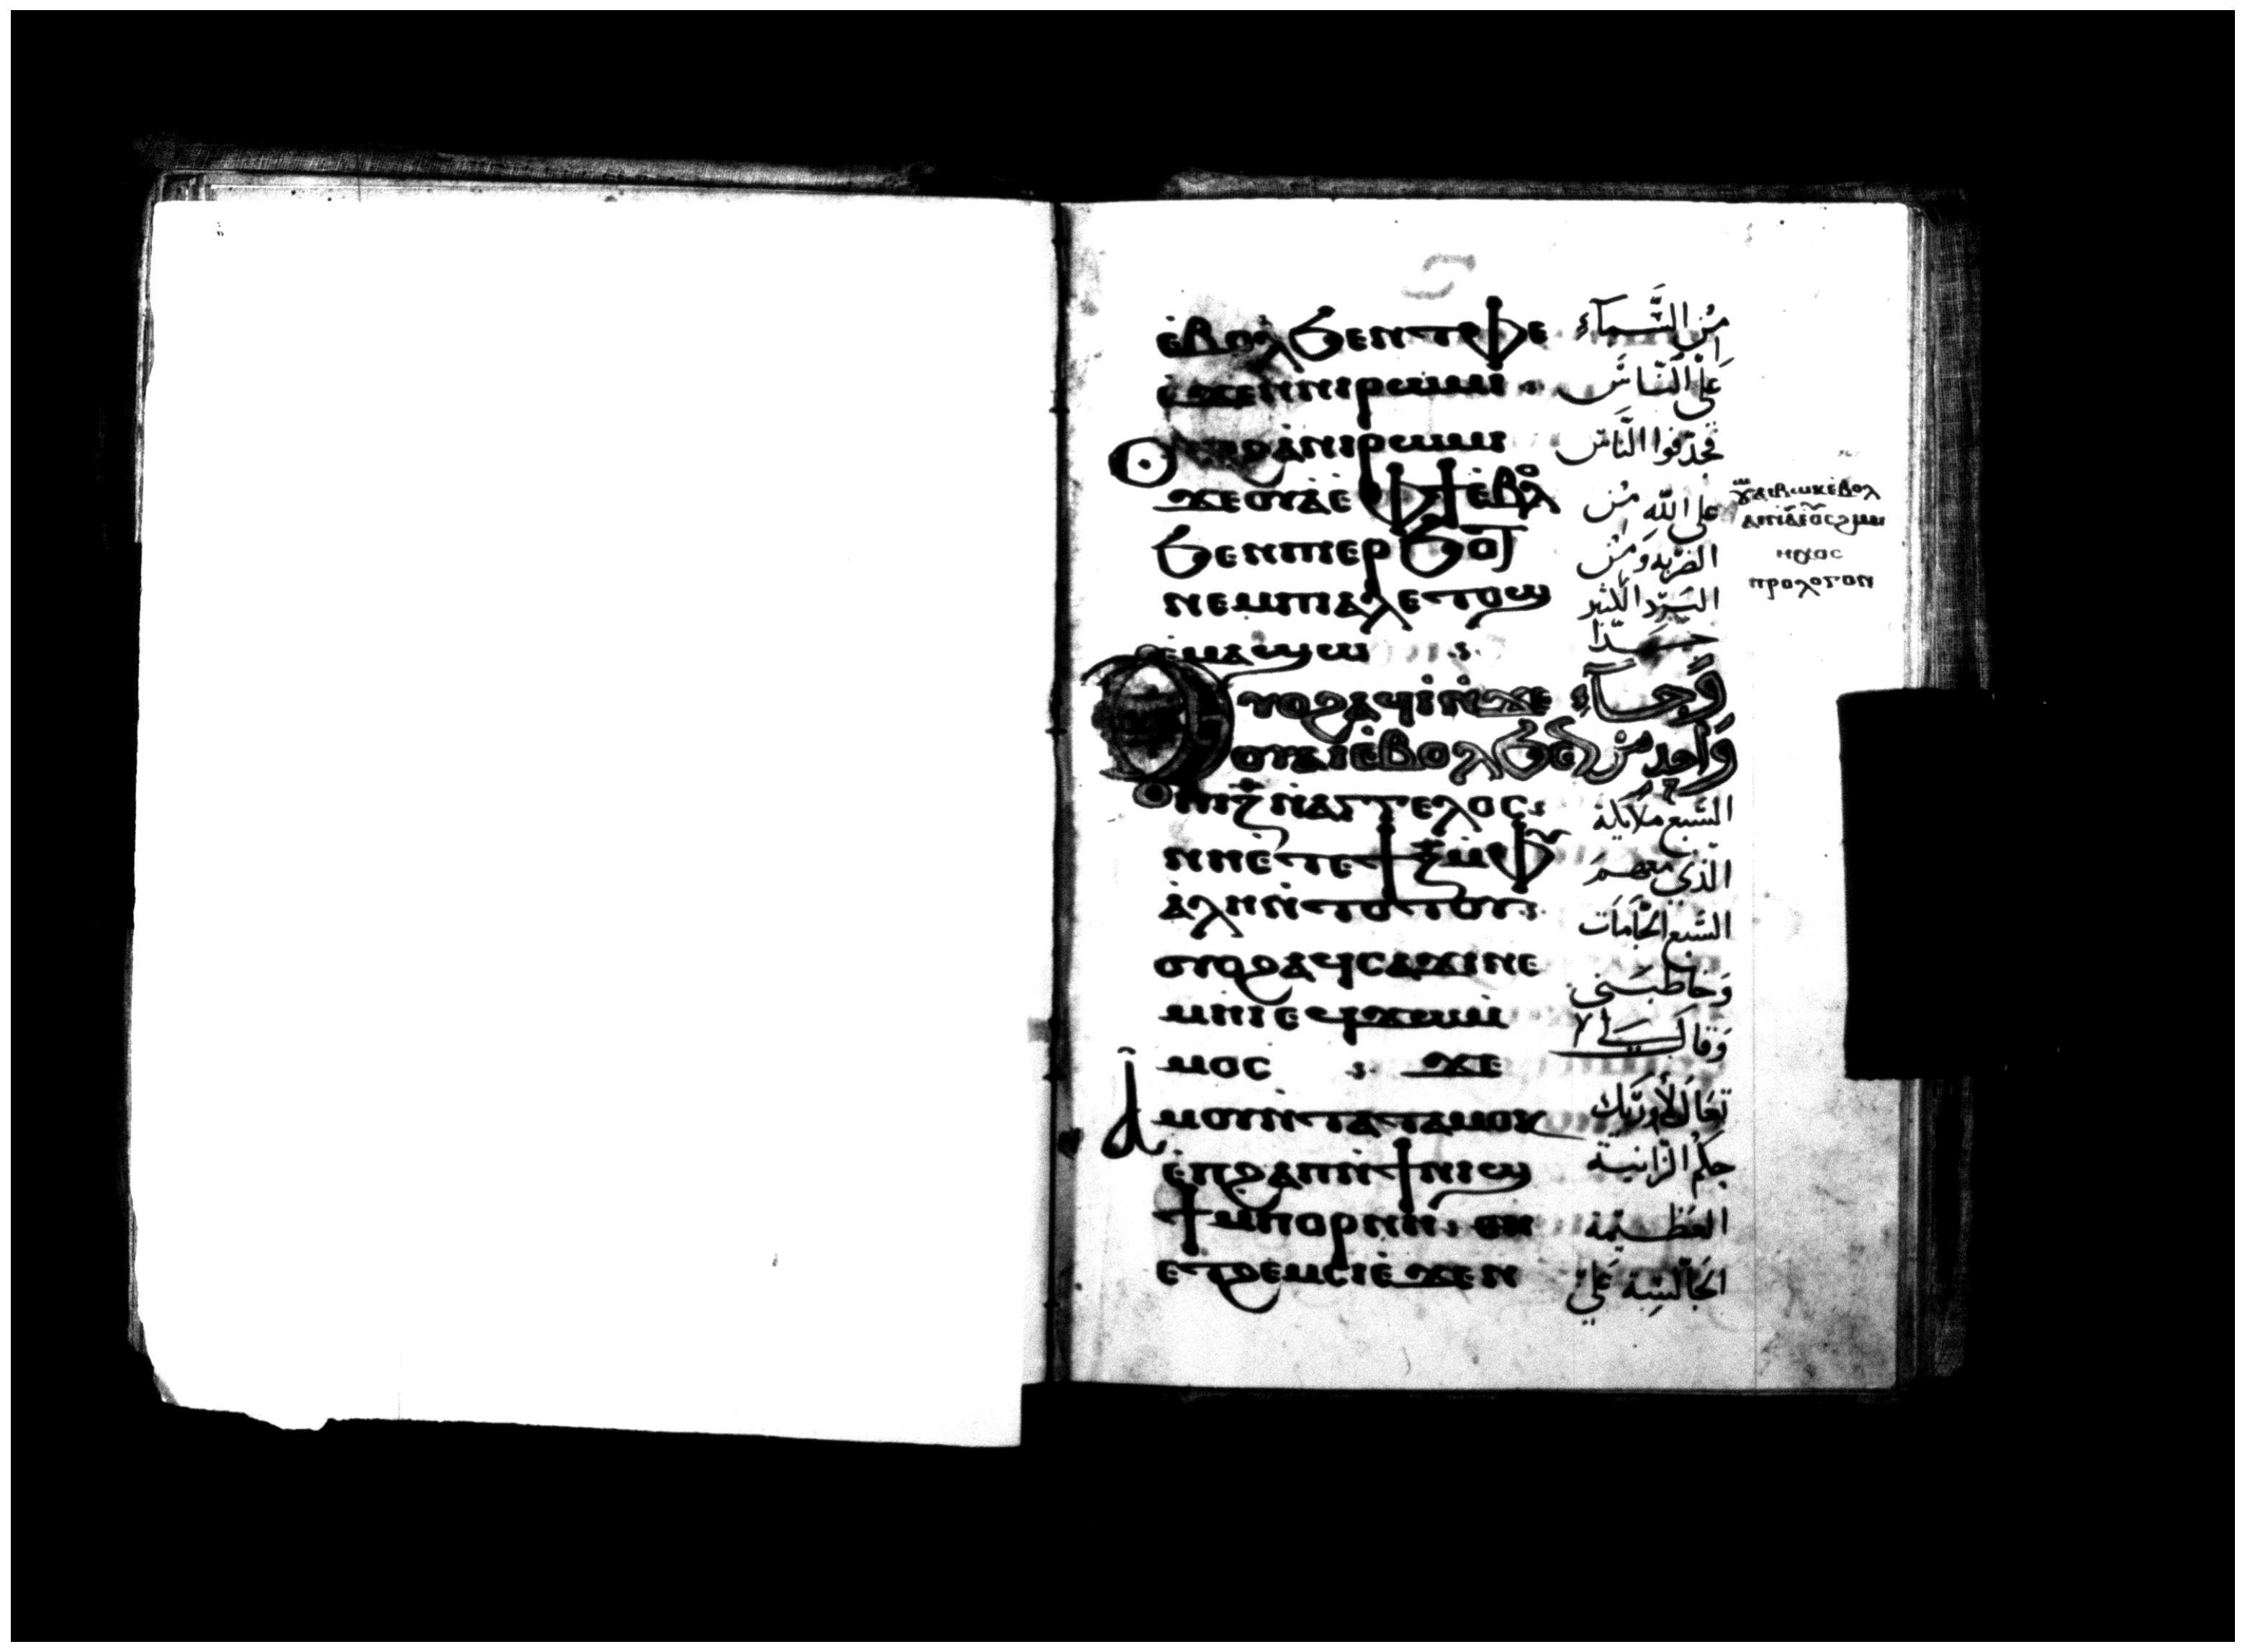 ⲉ̀ⲃⲟⲗ ϧⲉⲛ ⲧⲫⲉ من السَّمآءِ
ⲉ̀ϫⲉⲛ ⲛⲓⲣⲱⲙⲓ علَى النَّاسْ
ⲟⲩⲟϩ ⲁ̀ⲛⲓⲣⲱⲙⲓ فجدّفوا النَّاسْ
ϫⲉⲟⲩⲁ̀ ⲉ̀ⲫϯ ⲉ̀ⲃⲟⲗ علي اللهِ منْ
ϧⲉⲛ ⲡⲓⲉⲣϧⲟⲧ الضربه ومن
ⲛⲉⲙ ⲡⲓⲁⲗ ⲉⲧⲟϣ البَرد الكثير
ⲉ̀ⲙⲁϣⲱ جدّا
ⲟⲩⲟϩ ⲁϥⲓ̀ ⲛ̀ϫⲉ وَجآءِ
ⲟⲩⲁⲓ ⲉ̀ⲃⲟⲗ ϧⲉⲛ وَاحد منْ
ⲡⲓⲍ̅ ⲛ̀ⲁⲅⲅⲉⲗⲟⲥ السَّبع ملايكة
ⲛⲏ ⲉ̀ⲧⲉ ϯⲍ̅ ⲙ̀ⲫⲩ الّذي معهم
ⲁ̀ⲗⲏ ⲛ̀ⲧⲟⲧⲟⲩ السَّبع الجَامَات
ⲟⲩⲟϩ ⲁϥⲥⲁϫⲓ ⲛⲉ وَخاطبَني
ⲙⲏⲓ ⲉϥϫⲱ ⲙ̀ وَقال لي
ⲙⲟⲥ ϫⲉ
ⲁⲙⲟⲩ ⲛ̀ⲧⲁⲧⲁⲙⲟⲕ تعَال لأُورِيَك
ⲉ̀ⲡϩⲁⲡ ⲛ̀ϯⲛⲓϣ حكم الزَّانية
ϯ ⲙ̀ⲡⲟⲣⲛⲏ ⲑⲏ العَظيمة
ⲉⲧϩⲉⲙⲥⲓ ⲉ̀ϫⲉⲛ الجَالسِة عَلَى
ⲡⲣⲟⲗⲟⲅⲟⲛ